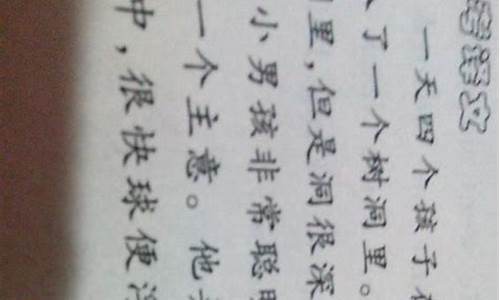 译文
一天四个孩子
了一个树洞里。
里,但是洞很深
小男孩非常聪明
一个主意。他
中,很快球便浮